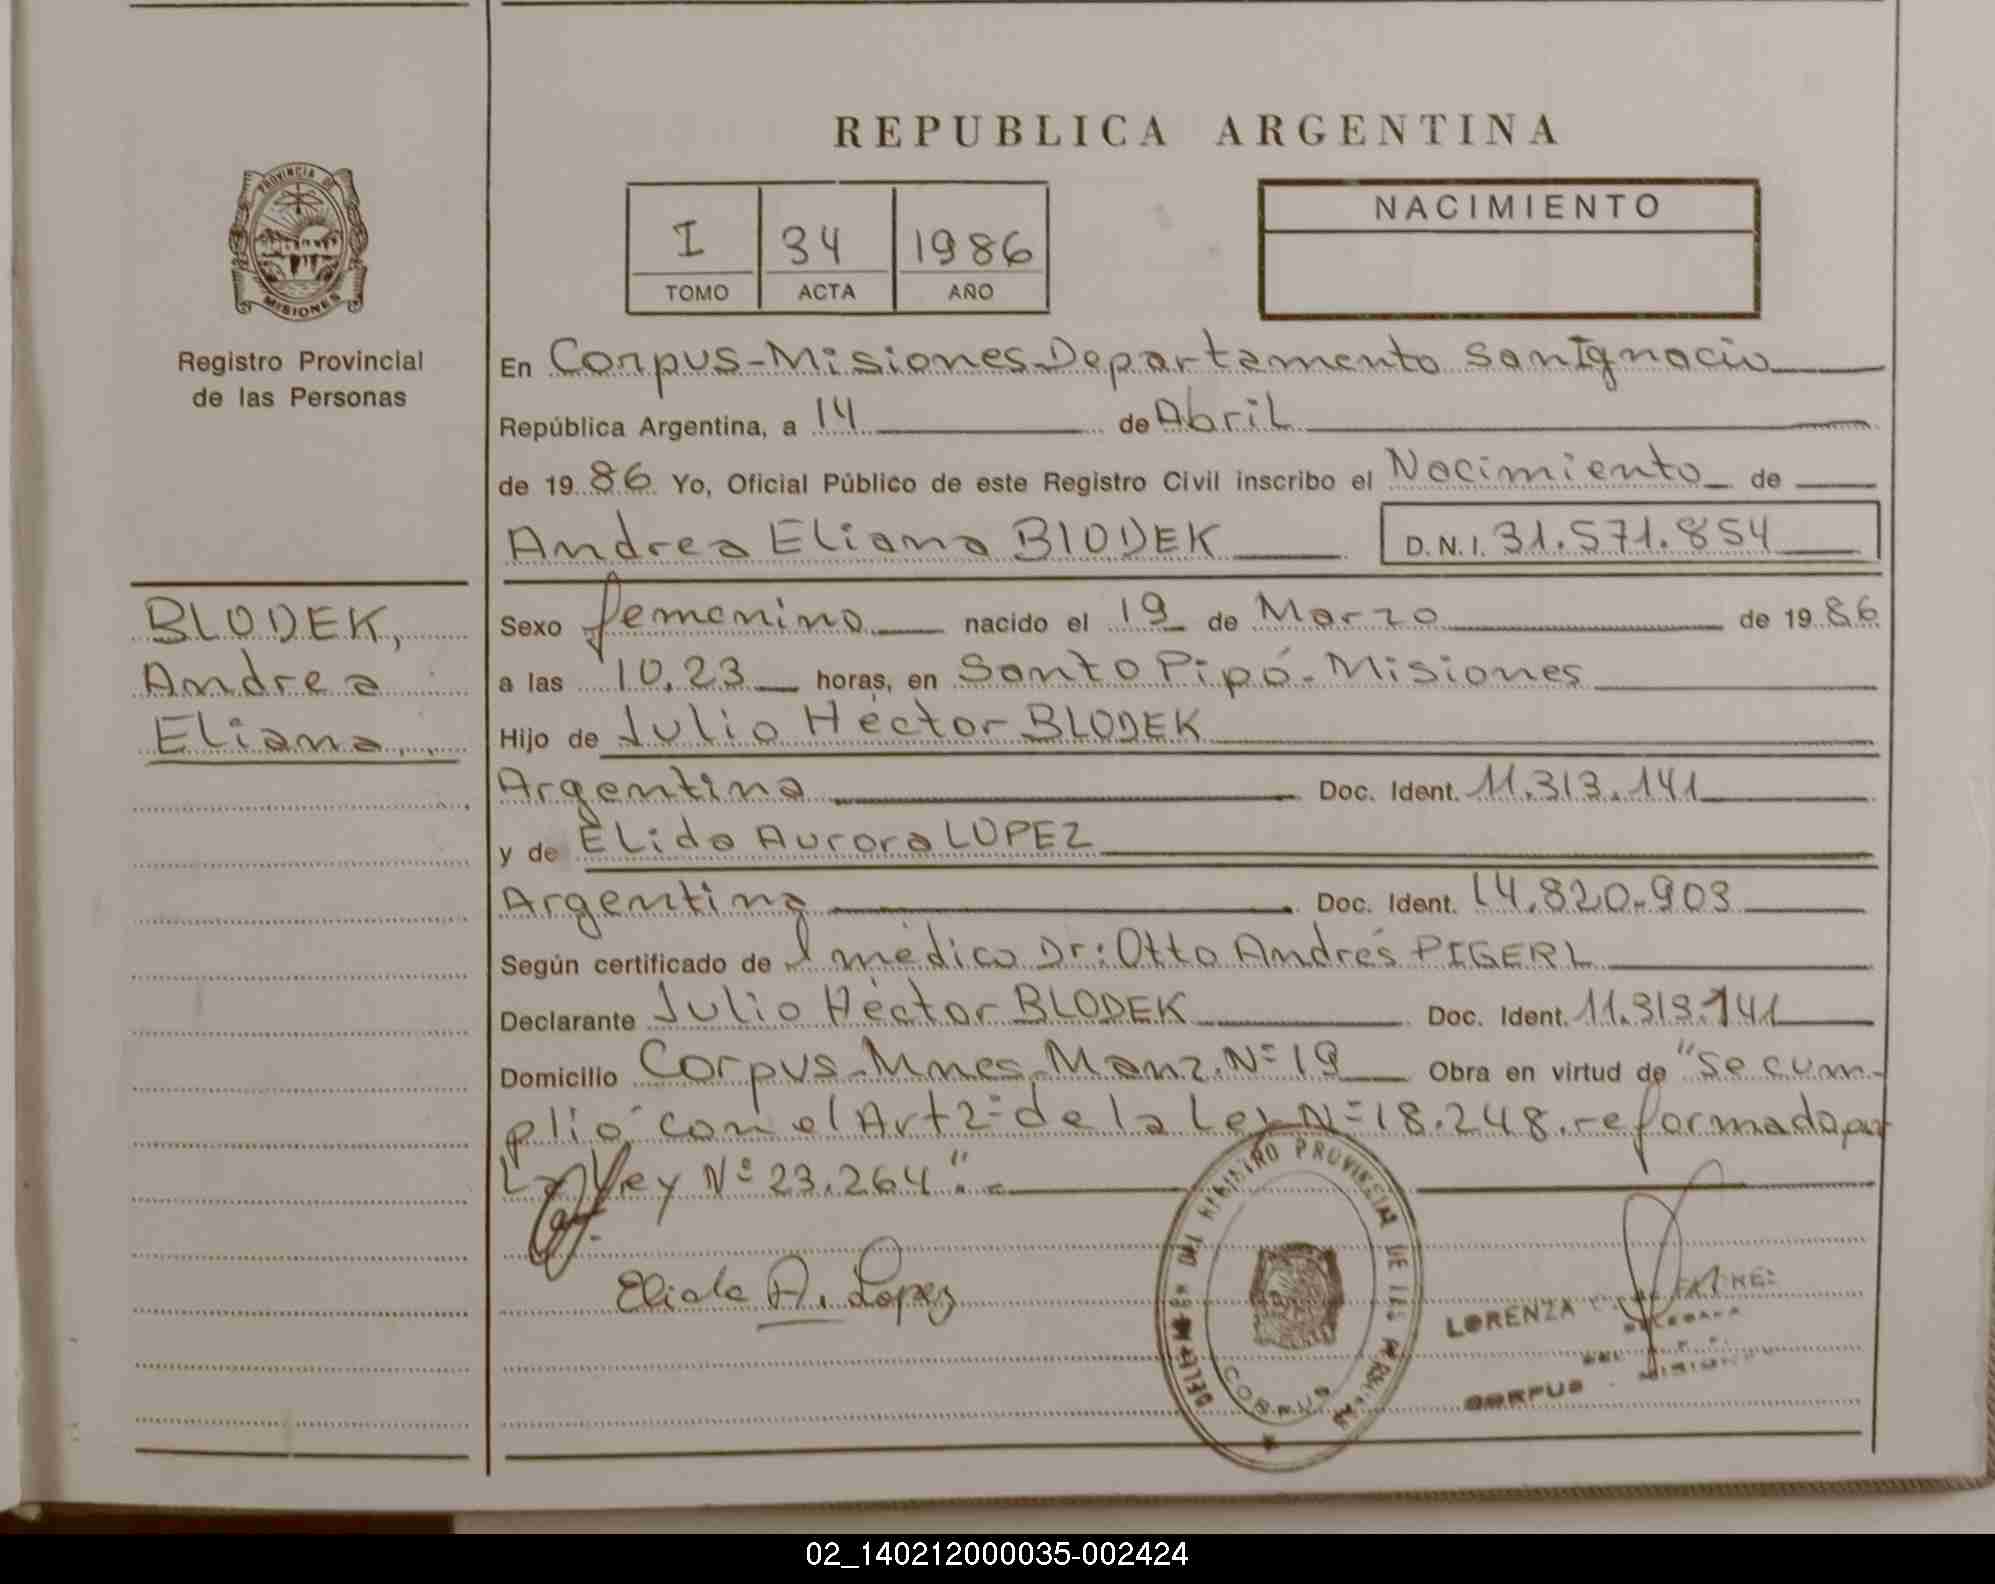 REPUBLICA ARGENTINA
PROVINCIA DE
MISIONES
Registro Provincial
de las Personas
I 34 1986
TOMO ACTA AÑO
NACIMIENTO
En Corpus-Misiones-Departamento San Ignacio
República Argentina, a 14 de Abril
de 1986 Yo, Oficial Público de este Registro Civil inscribo el Nacimiento de
Andrea Eliana BLODEK D.N.I. 31.571.854
BLODEK,
Andrea
Eliana
Sexo femenino nacido el 19 de Marzo de 1986
a las 10.23 horas, en Santo Pipó-Misiones
Hijo de Julio Héctor BLODEK
Argentina Doc. Ident. 11.313.141
y de Elida Aurora LOPEZ
Argentina Doc. Ident. 14.820.903
Según certificado del médico Dr: Otto Andrés PIGERL
Declarante Julio Héctor BLODEK Doc. Ident. 11.313.141
Domicilio Corpus-Mnes-Manz. Nº 19 Obra en virtud de "Se cum-
plió con el Art 2º de la Ley Nº 18.248. reformada por
La Ley Nº 23.264".-
Elida A. Lopez
REGISTRO PROVINCIAL DE LAS
CORPUS
LORENZA
CORPUS MISIONES
02_140212000035-002424